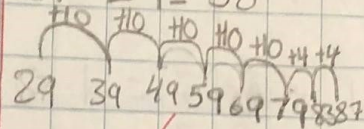 +10 +10 +10 +10 +10 +4 +4
29 39 49 59 69 79 83 87